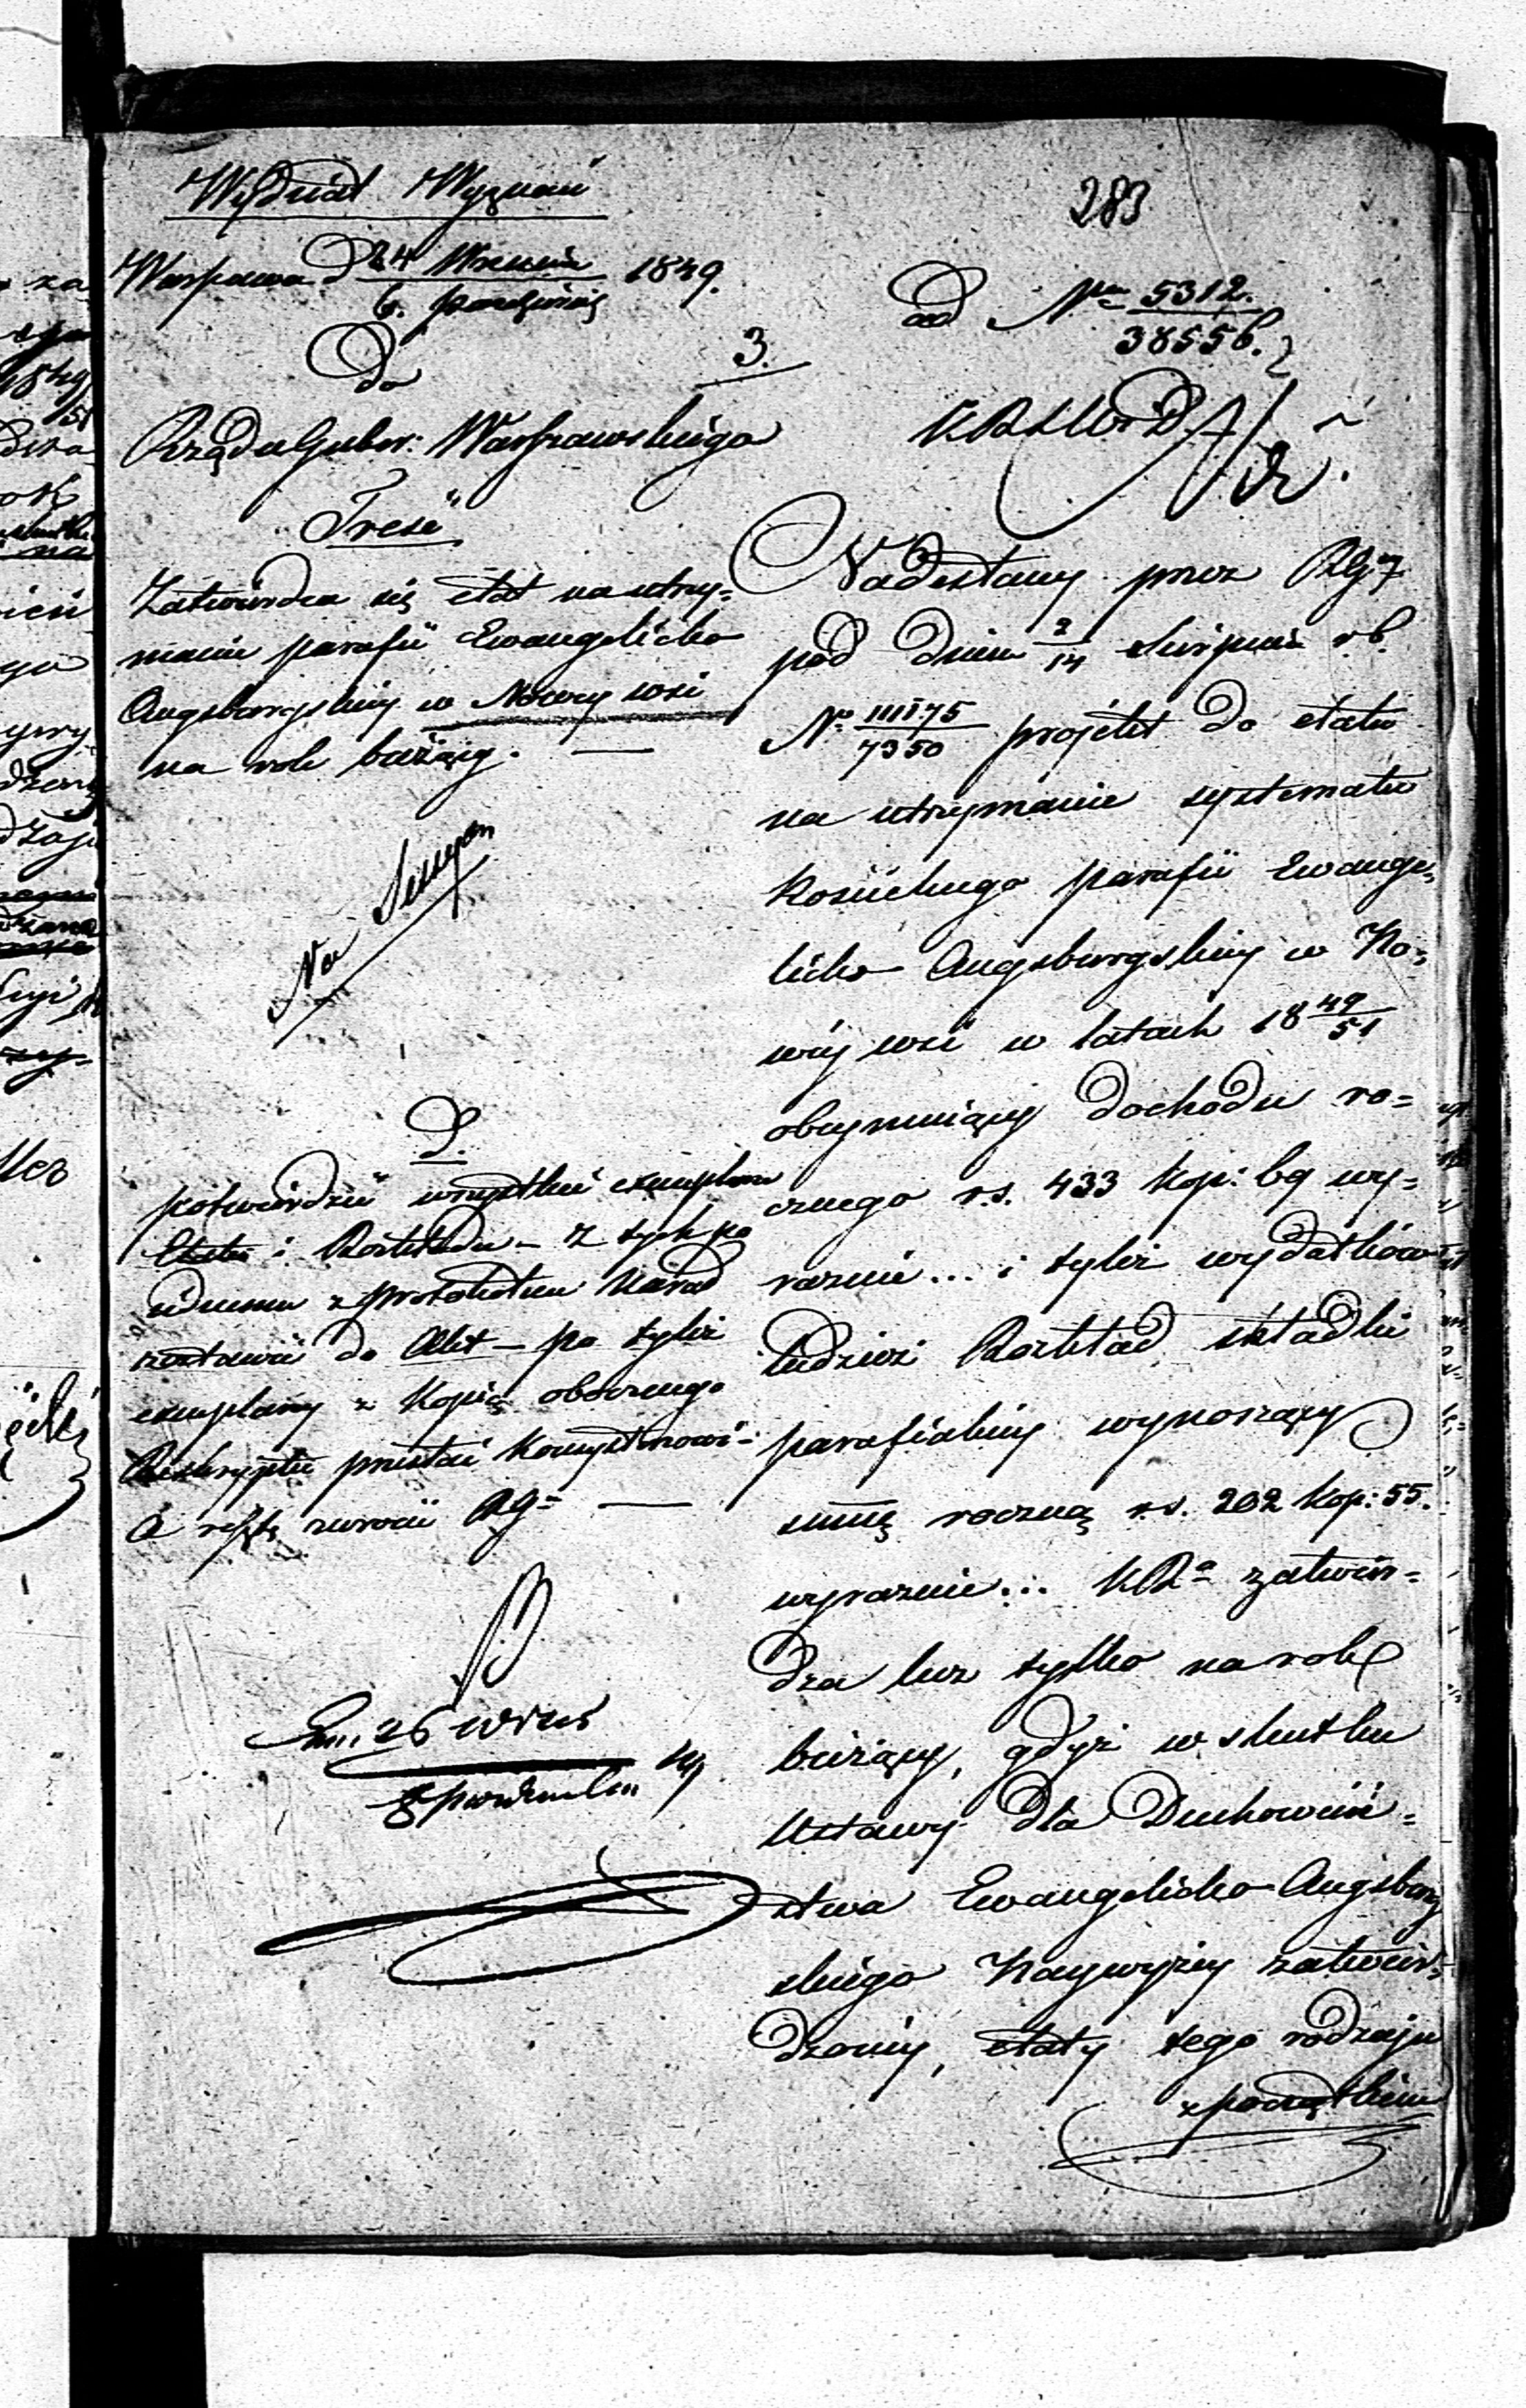 Wydział Wyznań
283
Warszawa d. 24 Września 1849.
6. Października
ad Nrm 5312.
38556.
Do
3.
Rządu Guber: Warszawskiego
Treść
Zatwierdza się etat na utrzy=
manie parafii Ewangelicko
Augsburgskiéj w Nowéj wsi
na rok bieżący. —
Na
D.
potwierdzić wszystkie exemplarze
Etatu i Rozkładu – Z tych po
jednemu z protokółem Narad
zostawić do Akt – po tyleż
exemplarzy z Kopią obocznego
Reskryptu przesłać Konsystorzowi –
A resztę zwrócić RG= —
26 Wrześ
8 października 49
Nadesłany przez RG
pod dniem 2/14 Sierpnia r.b.
No 111175/7350 projekt do etatu
na utrzymanie systematu
Kościelnego parafii Ewange=
licko Augsburgskiéj w No=
wéj wsi w latach 18 49/51
obejmujący dochodu ro=
cznego r.s. 433 kop: 69 wy=
raznie... i tyleż wydatków
tudzież Rozkład składki
parafialnéj wynoszący
summę roczną r.s. 202 kop: 55.
wyraznie... KRa zatwier=
dza lecz tylko na rok
bieżący, gdyż w skutku
Ustawy dla Duchowień=
stwa Ewangelicko-Augsburg
skiego Najwyżéj zatwier=
dzonéj, etaty tego rodzaju
z początkiem